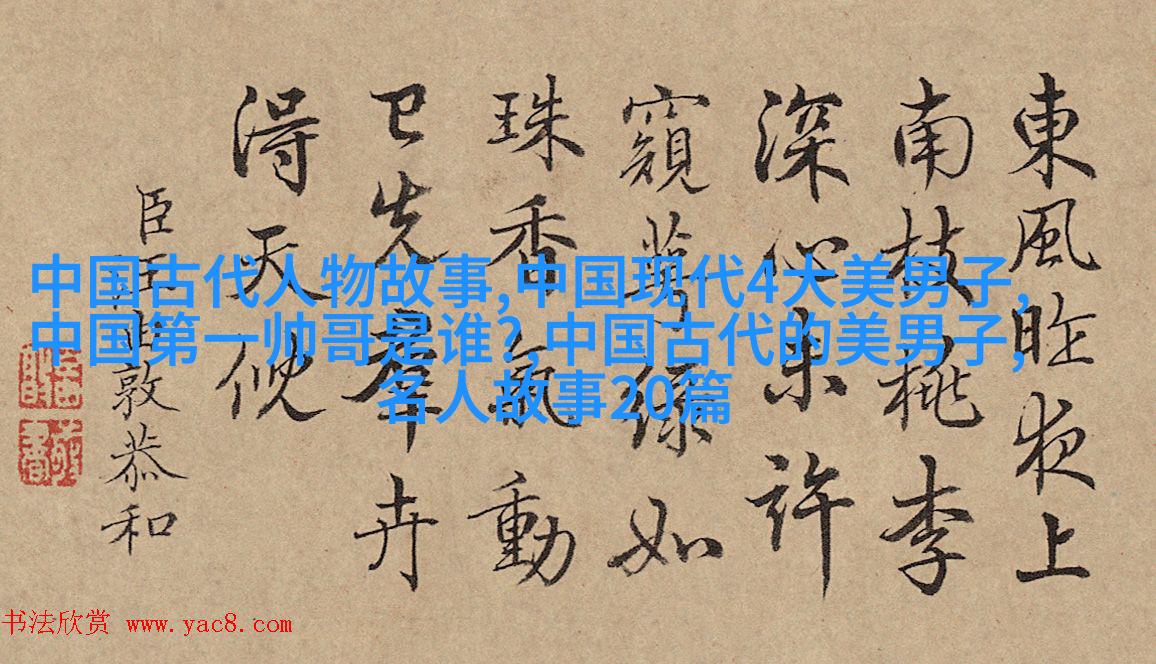 東風昨夜上
南枝桃李
深心未許
窺萼綠如
珠香氣動
已先羣卉
淂天倪
臣汪由敦恭和
中国古代人物故事,中国现代4大美男子,
中国第一帅哥是谁?,中国古代的美男子,
名人故事20篇
书法欣赏 www.yac8.com